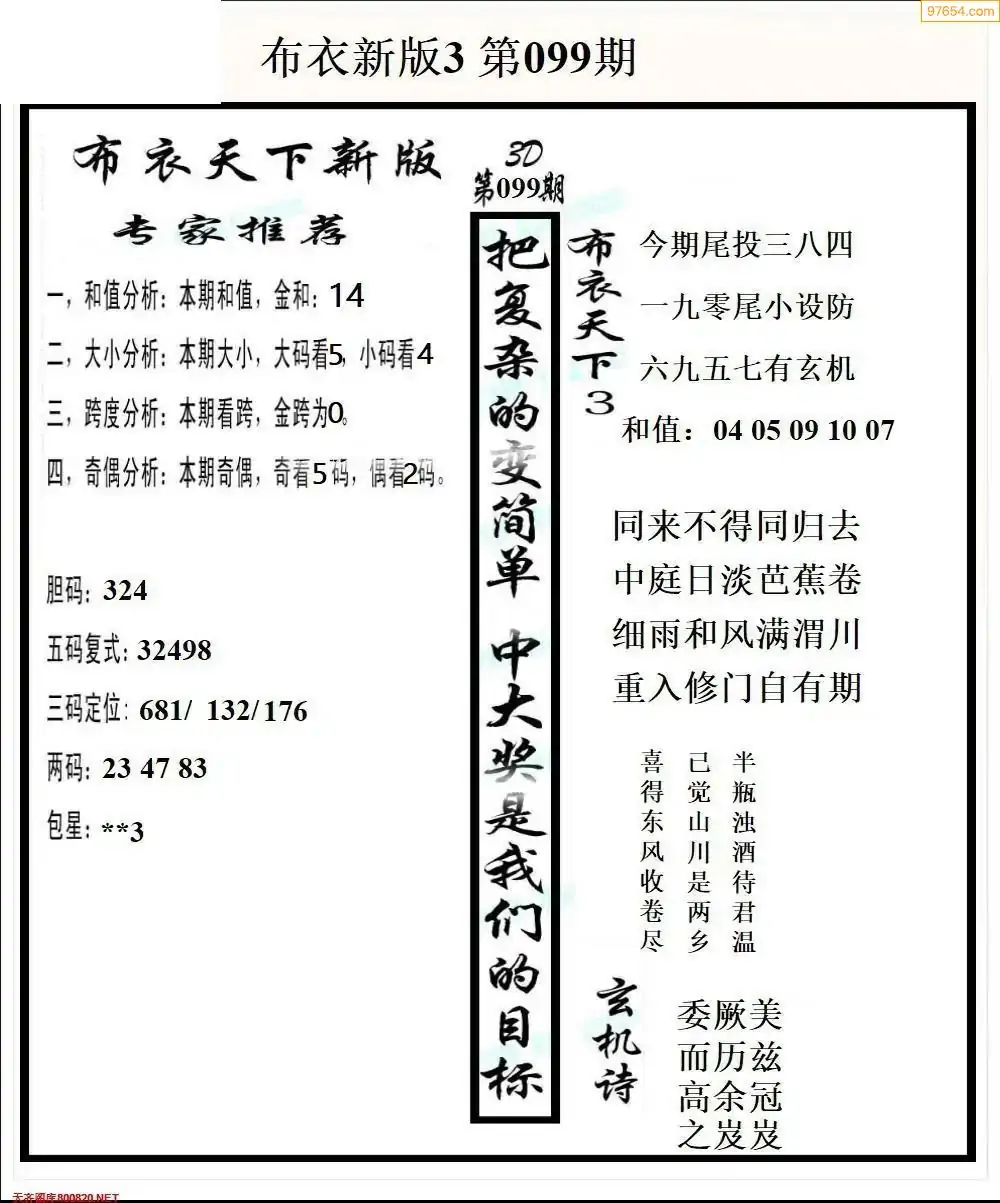 97654.com
布衣新版3 第099期
布衣天下新版
专家推荐
一，和值分析：本期和值，金和：14
二，大小分析：本期大小，大码看5，小码看4
三，跨度分析：本期看跨，金跨为0。
四，奇偶分析：本期奇偶，奇看5码，偶看2码。
胆码：324
五码复式：32498
三码定位：681/ 132/176
两码：23 47 83
包星：**3
3D
第099期
把复杂的变简单 中大奖是我们的目标
布衣天下3
今期尾投三八四
一九零尾小设防
六九五七有玄机
和值：04 05 09 10 07
同来不得同归去
中庭日淡芭蕉卷
细雨和风满渭川
重入修门自有期
半瓶浊酒待君温
己觉山川是两乡
喜得东风收卷尽
玄机诗
委厥美
而历兹
高余冠
之岌岌
天齐图库800820.NET